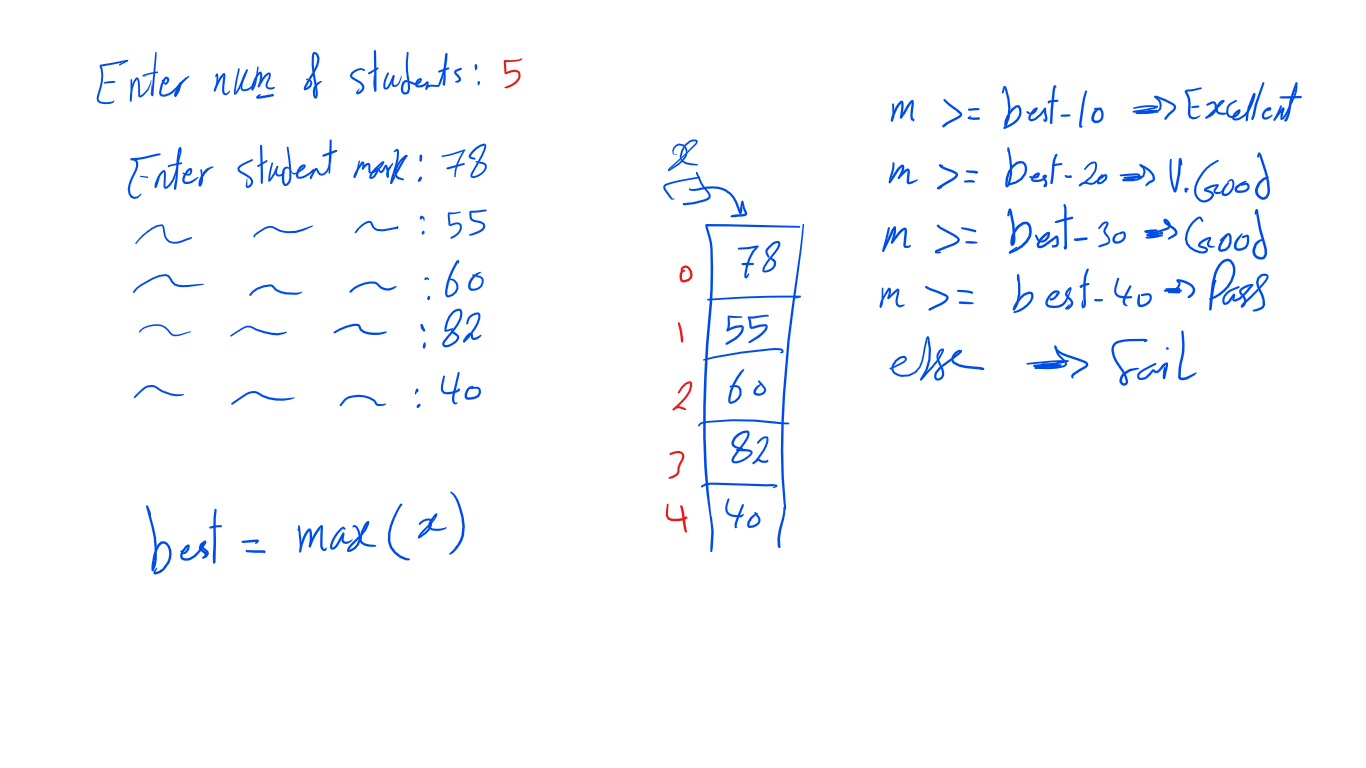 Enter num of students: 5
Enter student mark: 78
: 55
: 60
: 82
: 40
best = max(x)
x
0 78
1 55
2 60
3 82
4 40
m >= best-10 => Excellent
m >= best-20 => V.Good
m >= best-30 => Good
m >= best-40 => Pass
else => Fail